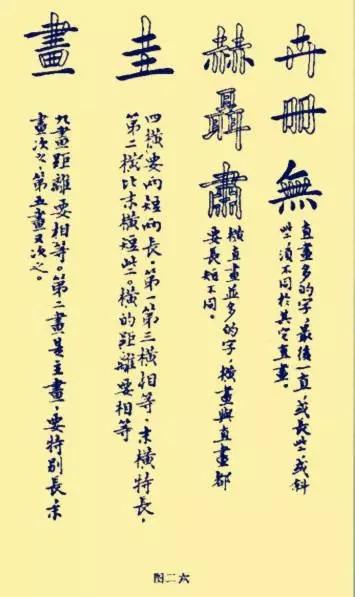 卉冊無
直畫多的字，最後一直，或長些，或斜
些，須不同於其它直畫。
赫聶肅
橫直畫並多的字，橫畫與直畫都
要長短不同。
圭
四橫要兩短兩長，第一第三橫相等，末橫特長，
第二橫比末橫短些。橫的距離要相等
畫
九畫距離要相等。第二畫是主畫，要特別長，末
畫次之，第五畫又次之。
图二六